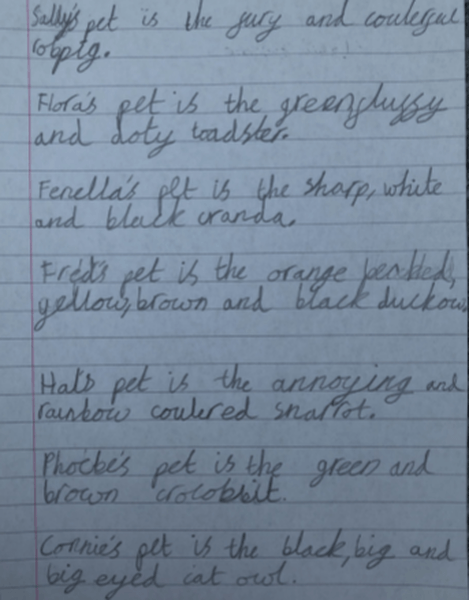 Sally's pet is the fury and coulerful
robpig.
Flora's pet is the green,flussy
and doty toadster.
Fenella's pet is the sharp, white
and black cranda.
Fred's pet is the orange
yellow,brown and black duckow.
Hal's pet is the annoying and
rainbow coulered snarrot.
Phoebe's pet is the green and
brown crocobbit.
Connie's pet is the black,big and
big eyed cat owl.